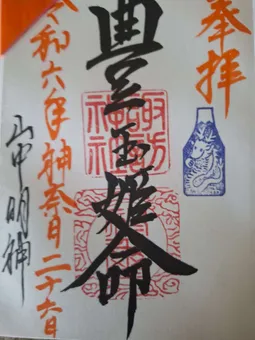 奉拝
豊玉姫命
諏訪神社
令和六年神奈日二十六日
山中明神